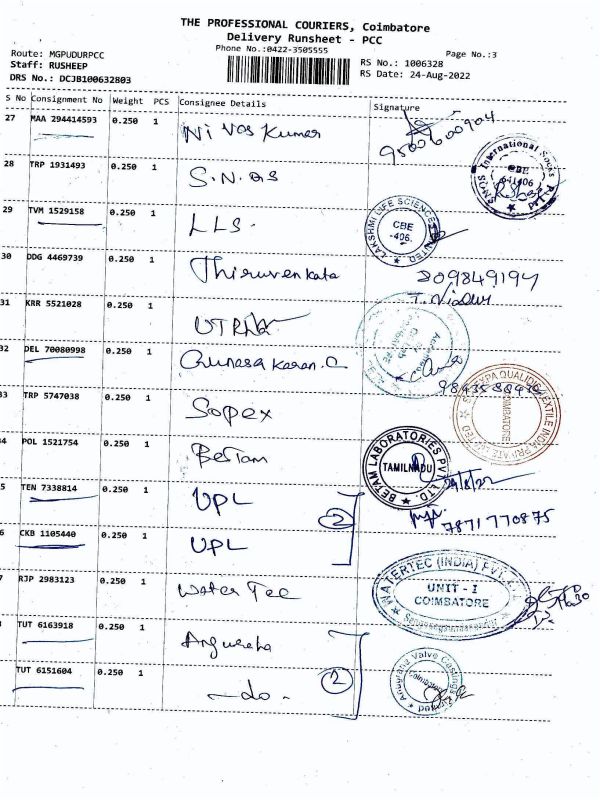 THE PROFESSIONAL COURIERS, Coimbatore
Delivery Runsheet - PCC
Phone No.:0422-3505555
Page No.:3
Route: MGPUDURPCC
Staff: RUSHEEP
DRS No.: DCJB100632803
RS No.: 1006328
RS Date: 24-Aug-2022
S No Consignment No Weight PCS Consignee Details Signature
27 MAA 294414593 0.250 1 Nivas Kumar 9500600904
28 TRP 1931493 0.250 1 S.N.QS
International Socks
CBE
641406
29 TVM 1529158 0.250 1 LLS.
LAKSHMI LIFE SCIENCE
CBE
-406.
30 DDG 4469739 0.250 1 Thiruvenkata
31 KRR 5521028 0.250 1
32 DEL 70080998 0.250 1 Gunasakaran.
TRP 5747038 0.250 1 Sopex
QUALIDIS TEXTILE INDIA PRIVATE LIMITED
COIMBATORE
POL 1521754 0.250 1 Betam
BETAM LABORATORIES PVT. LTD.
TAMILNADU
24/8/22
TEN 7338814 0.250 1 UPL
2
7871770875
CKB 1105440 0.250 1 UPL
RJP 2983123 0.250 1 Water Tec
WATERTEC (INDIA) PVT. LTD
UNIT - I
COIMBATORE
TUT 6163918 0.250 1
2
TUT 6151604 0.250 1 -do-
Valve Castings
Coimbatore